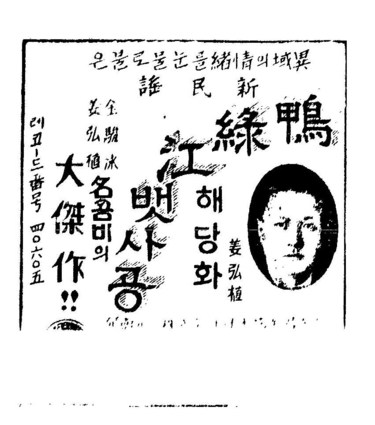 異域의情緖를눈물로불은
新民謠
鴨綠江뱃사공
해당화
姜弘植
金駿泳
姜弘植
名콤비의
大傑作!!
레코ー드番号 四〇六〇五